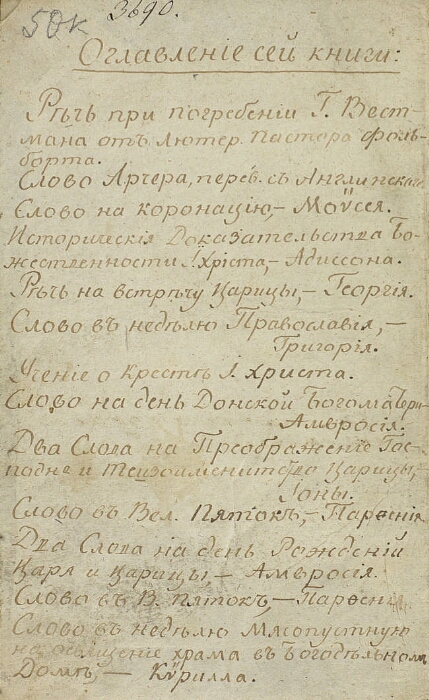 50к 3690.
Оглавленіе сей книги:
Рѣчь при погребеніи Г. Вест-
мана отъ лютер. пастора Фоль-
борта.
Слово Арчера, перев. съ Англинскаго.
Слово на коронацію, – Моѵсея.
Историческія Доказательства Бо-
жественности І. Хріста, – Адиссона.
Рѣчь на встрѣчу Царицы, – Георгія.
Слово въ недѣлю Православія, –
Григорія.
Ученіе о Крестѣ І. Христа.
Слово на день Донской Богоматери
Амвросія.
Два Слова на Преображеніе Гос-
подне и тезоименитство Царицы, –
Іоны.
Слово въ Вел. Пятокъ, – Парѳенія
Два Слова на день Рожденій
Царя и Царицы – Амвросія.
Слово въ В. пятокъ, – Парѳенія
Слово въ недѣлю Мясопустную
на освященіе храма въ Богодѣльномъ
Домѣ, – Кѵрилла.